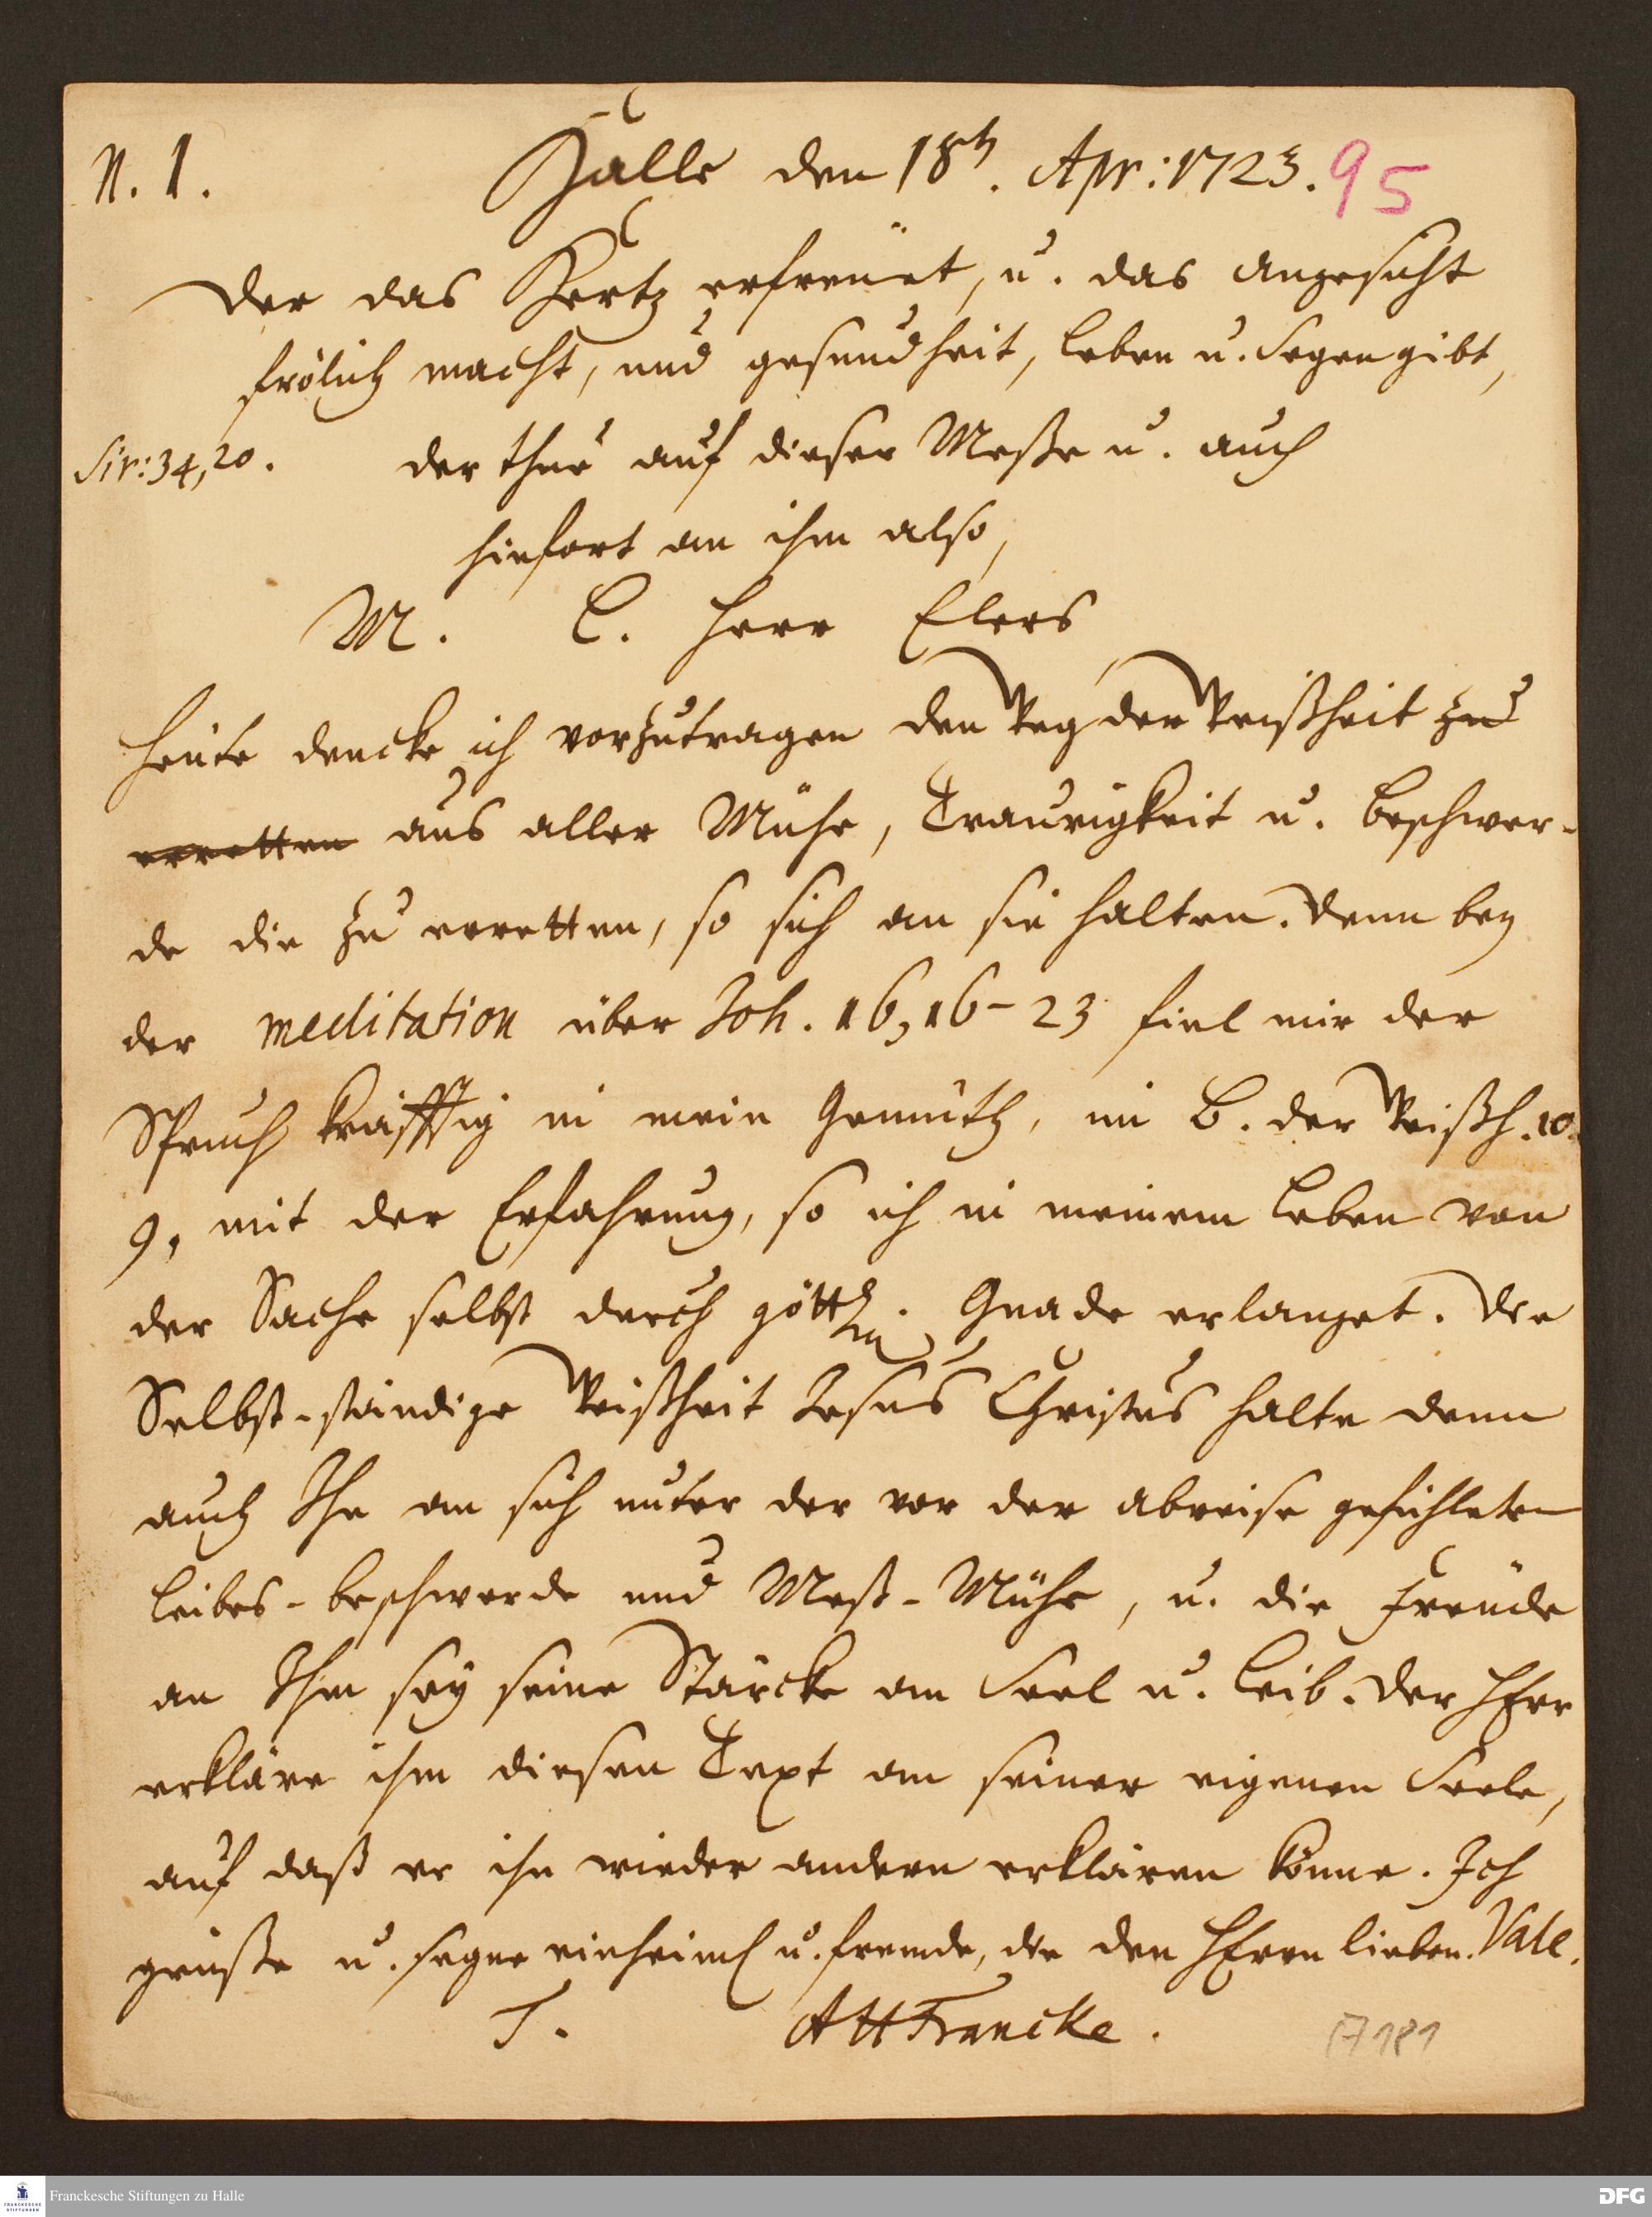 N. 1. Halle den 18t. Apr: 1723. 95
Der das Hertz erfreüet, u. das angesicht
frölich macht, und gesundheit, leben u. Segen gibt,
Sir: 34, 20. der thue auf dieser Meße u. auch
hinfort an ihm also,
M. L. Herr Elers
Heute dencke ich vorzutragen den Weg der Weißheit zu
erretten aus aller Mühe, Traurigkeit u. beschwer-
de die zu erretten, so sich an sie halten. Denn bey
der meditation über Joh. 16, 16-23 fiel mir der
Spruch kräfftig in mein Gemüth, im B. der Weißh. 10.
9, mit der Erfahrung, so ich in meinem leben von
der Sache selbst durch göttl. Gnade erlanget. Die
Selbst-ständige Weißheit Jesus Christus halte denn
auch Ihn an sich unter der vor der abreise gefühleten
leibes-beschwerde und Meß-Mühe, u. die Freude
an Ihm sey seine Stärcke an Seel u. leib. Der HErr
erkläre ihm diesen Text an seiner eigenen Seele,
auf daß er ihn wieder andern erklären könne. Ich
grüße u. segne einheim u. fremde, die den HErrn lieben. Vale.
T. AHFrancke.
A 181
Franckesche Stiftungen zu Halle
DFG